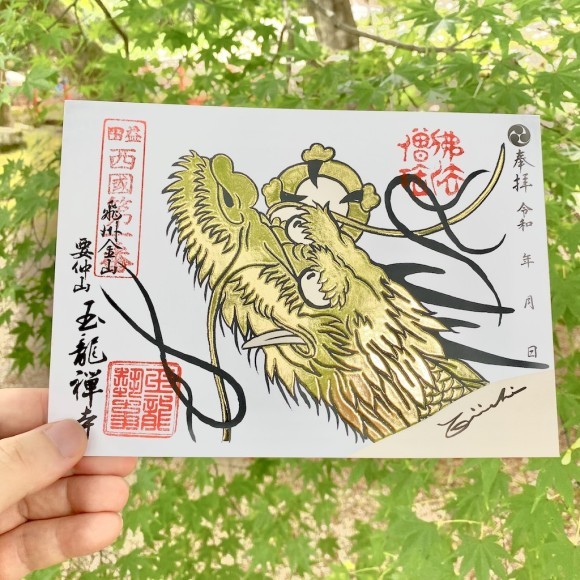 奉拝
令和 年 月 日
佛法
僧宝
益田
西國第
飛州金山
要仲山
玉龍禅寺